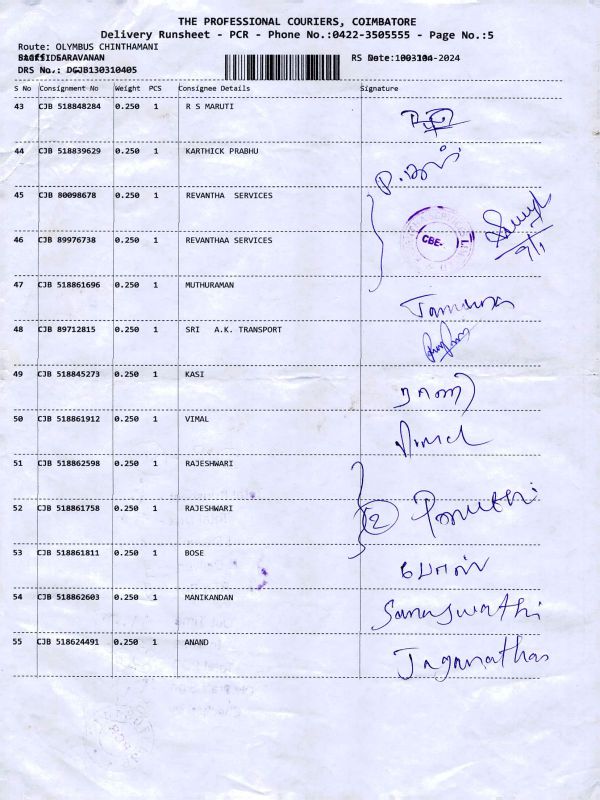 THE PROFESSIONAL COURIERS, COIMBATORE
Delivery Runsheet - PCR - Phone No.:0422-3505555 - Page No.:5
Route: OLYMBUS CHINTHAMANI
SARAVANAN
DRS No.: DGJB130310405
S No Consignment No Weight PCS Consignee Details Signature
43 CJB 518848284 0.250 1 R S MARUTI
44 CJB 518839629 0.250 1 KARTHICK PRABHU
45 CJB 80098678 0.250 1 REVANTHA SERVICES
46 CJB 89976738 0.250 1 REVANTHAA SERVICES
CBE-
47 CJB 518861696 0.250 1 MUTHURAMAN
48 CJB 89712815 0.250 1 SRI A.K. TRANSPORT
49 CJB 518845273 0.250 1 KASI
50 CJB 518861912 0.250 1 VIMAL
51 CJB 518862598 0.250 1 RAJESHWARI
52 CJB 518861758 0.250 1 RAJESHWARI 2
53 CJB 518861811 0.250 1 BOSE போஸ்
54 CJB 518862603 0.250 1 MANIKANDAN Saraswathi
55 CJB 518624491 0.250 1 ANAND Jaganathan